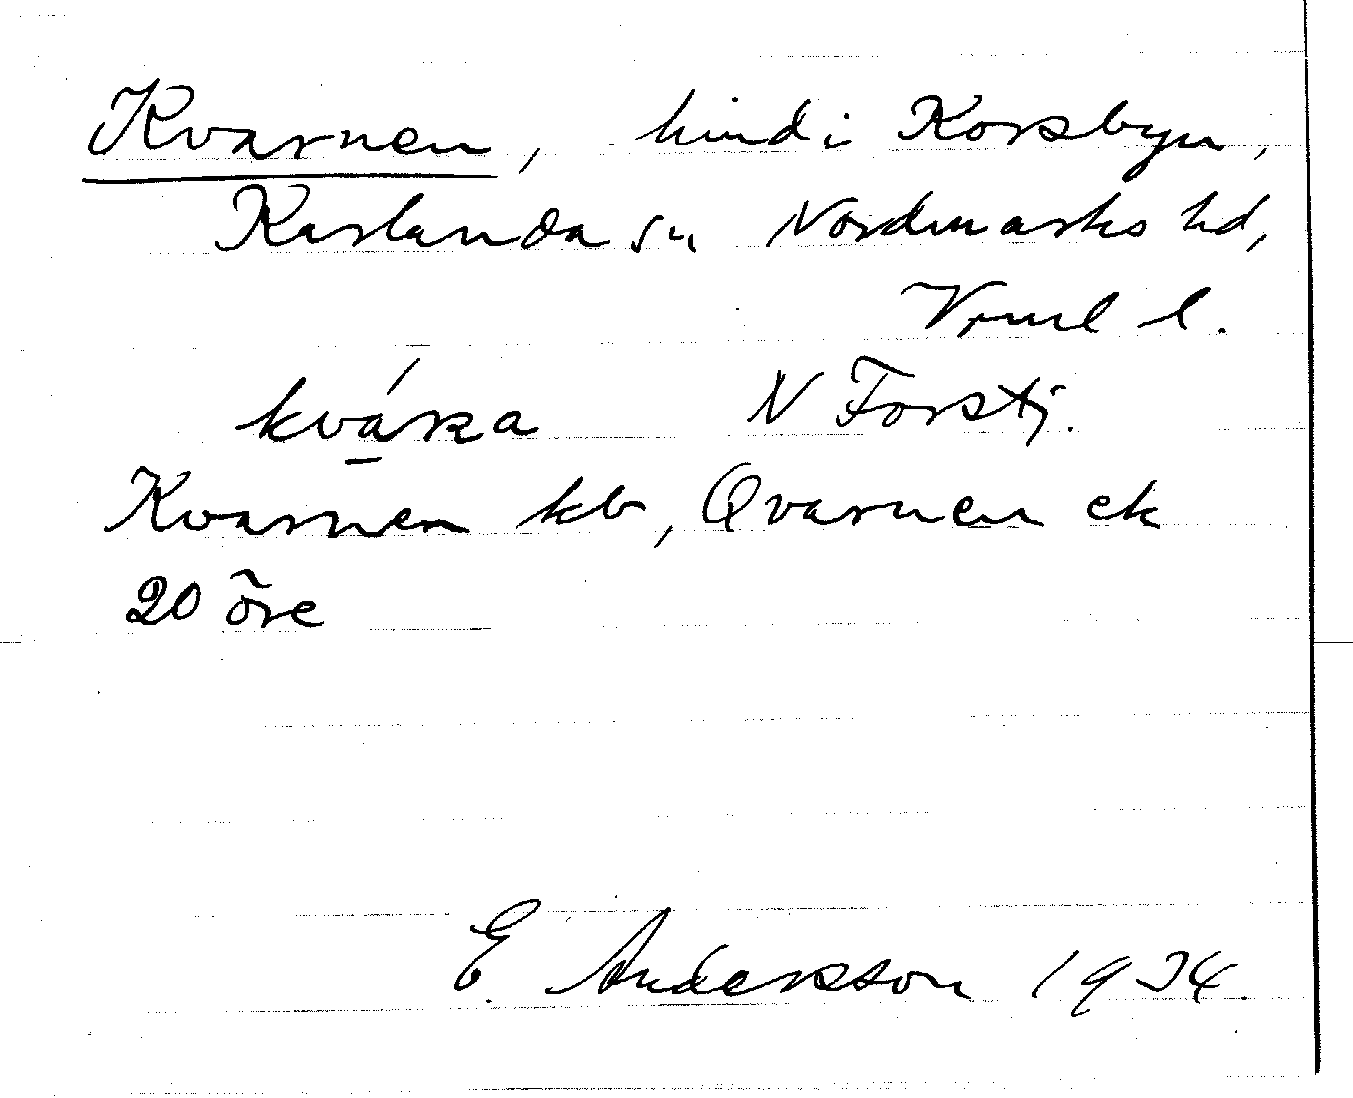 Kvarnen, hmd i Korsbyn,
Karlanda sn Nordmarks hd,
Vrml l.
N Forstj.
Kvarnen kb, Qvarnen ek
20 öre
E. Andersson 1934